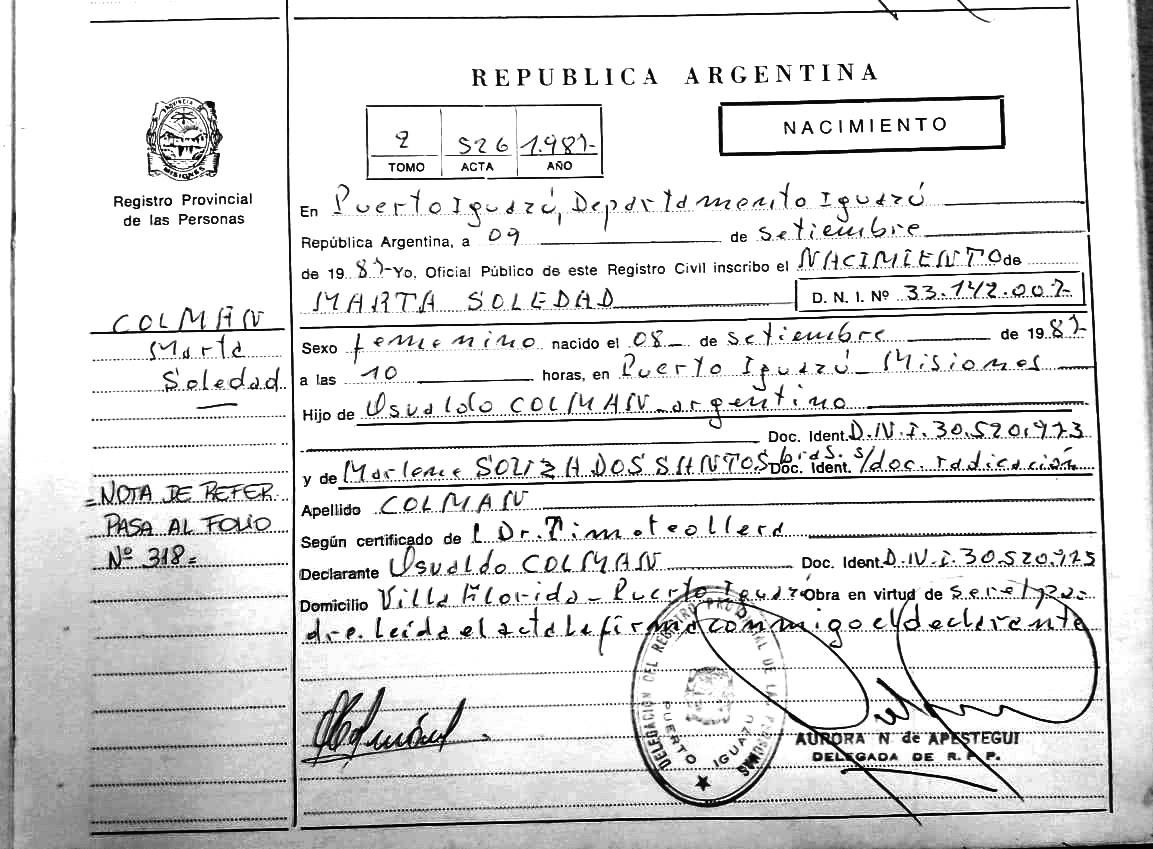 REPUBLICA ARGENTINA
PROVINCIA DE
MISIONES
Registro Provincial
de las Personas
2 526 1.987-
TOMO ACTA AÑO
NACIMIENTO
En Puerto Iguazú, Departamento Iguazú
República Argentina, a 09 de setiembre
de 1987- Yo, Oficial Público de este Registro Civil inscribo el NACIMIENTO de
MARTA SOLEDAD D. N. I. Nº 33.142.007-
COLMÁN
Marta
Soledad
Sexo femenino nacido el 08 de setiembre de 1987-
a las 10 horas, en Puerto Iguazú Misiones
Hijo de Osvaldo COLMAN argentino
Doc. Ident. D.N.I. 30.520.973
y de Marlene SOUZA DOS SANTOS bras. Doc. Ident. s/doc. radicación
NOTA DE REFER
PASA AL FOLIO
Nº 318=
Apellido COLMAN
Según certificado de l Dr. Timoteo Llera
Declarante Osvaldo COLMAN Doc. Ident. D.N.I. 30.520.973
Domicilio Villa Florida - Puerto Iguazú Obra en virtud de ser el pa-
dre. leída el acta la firma conmigo el declarante
DELEGACION DEL REGISTRO PROVINCIAL DE LAS PERSONAS
PUERTO IGUAZU
AURORA N de APESTEGUI
DELEGADA DE R. P. P.